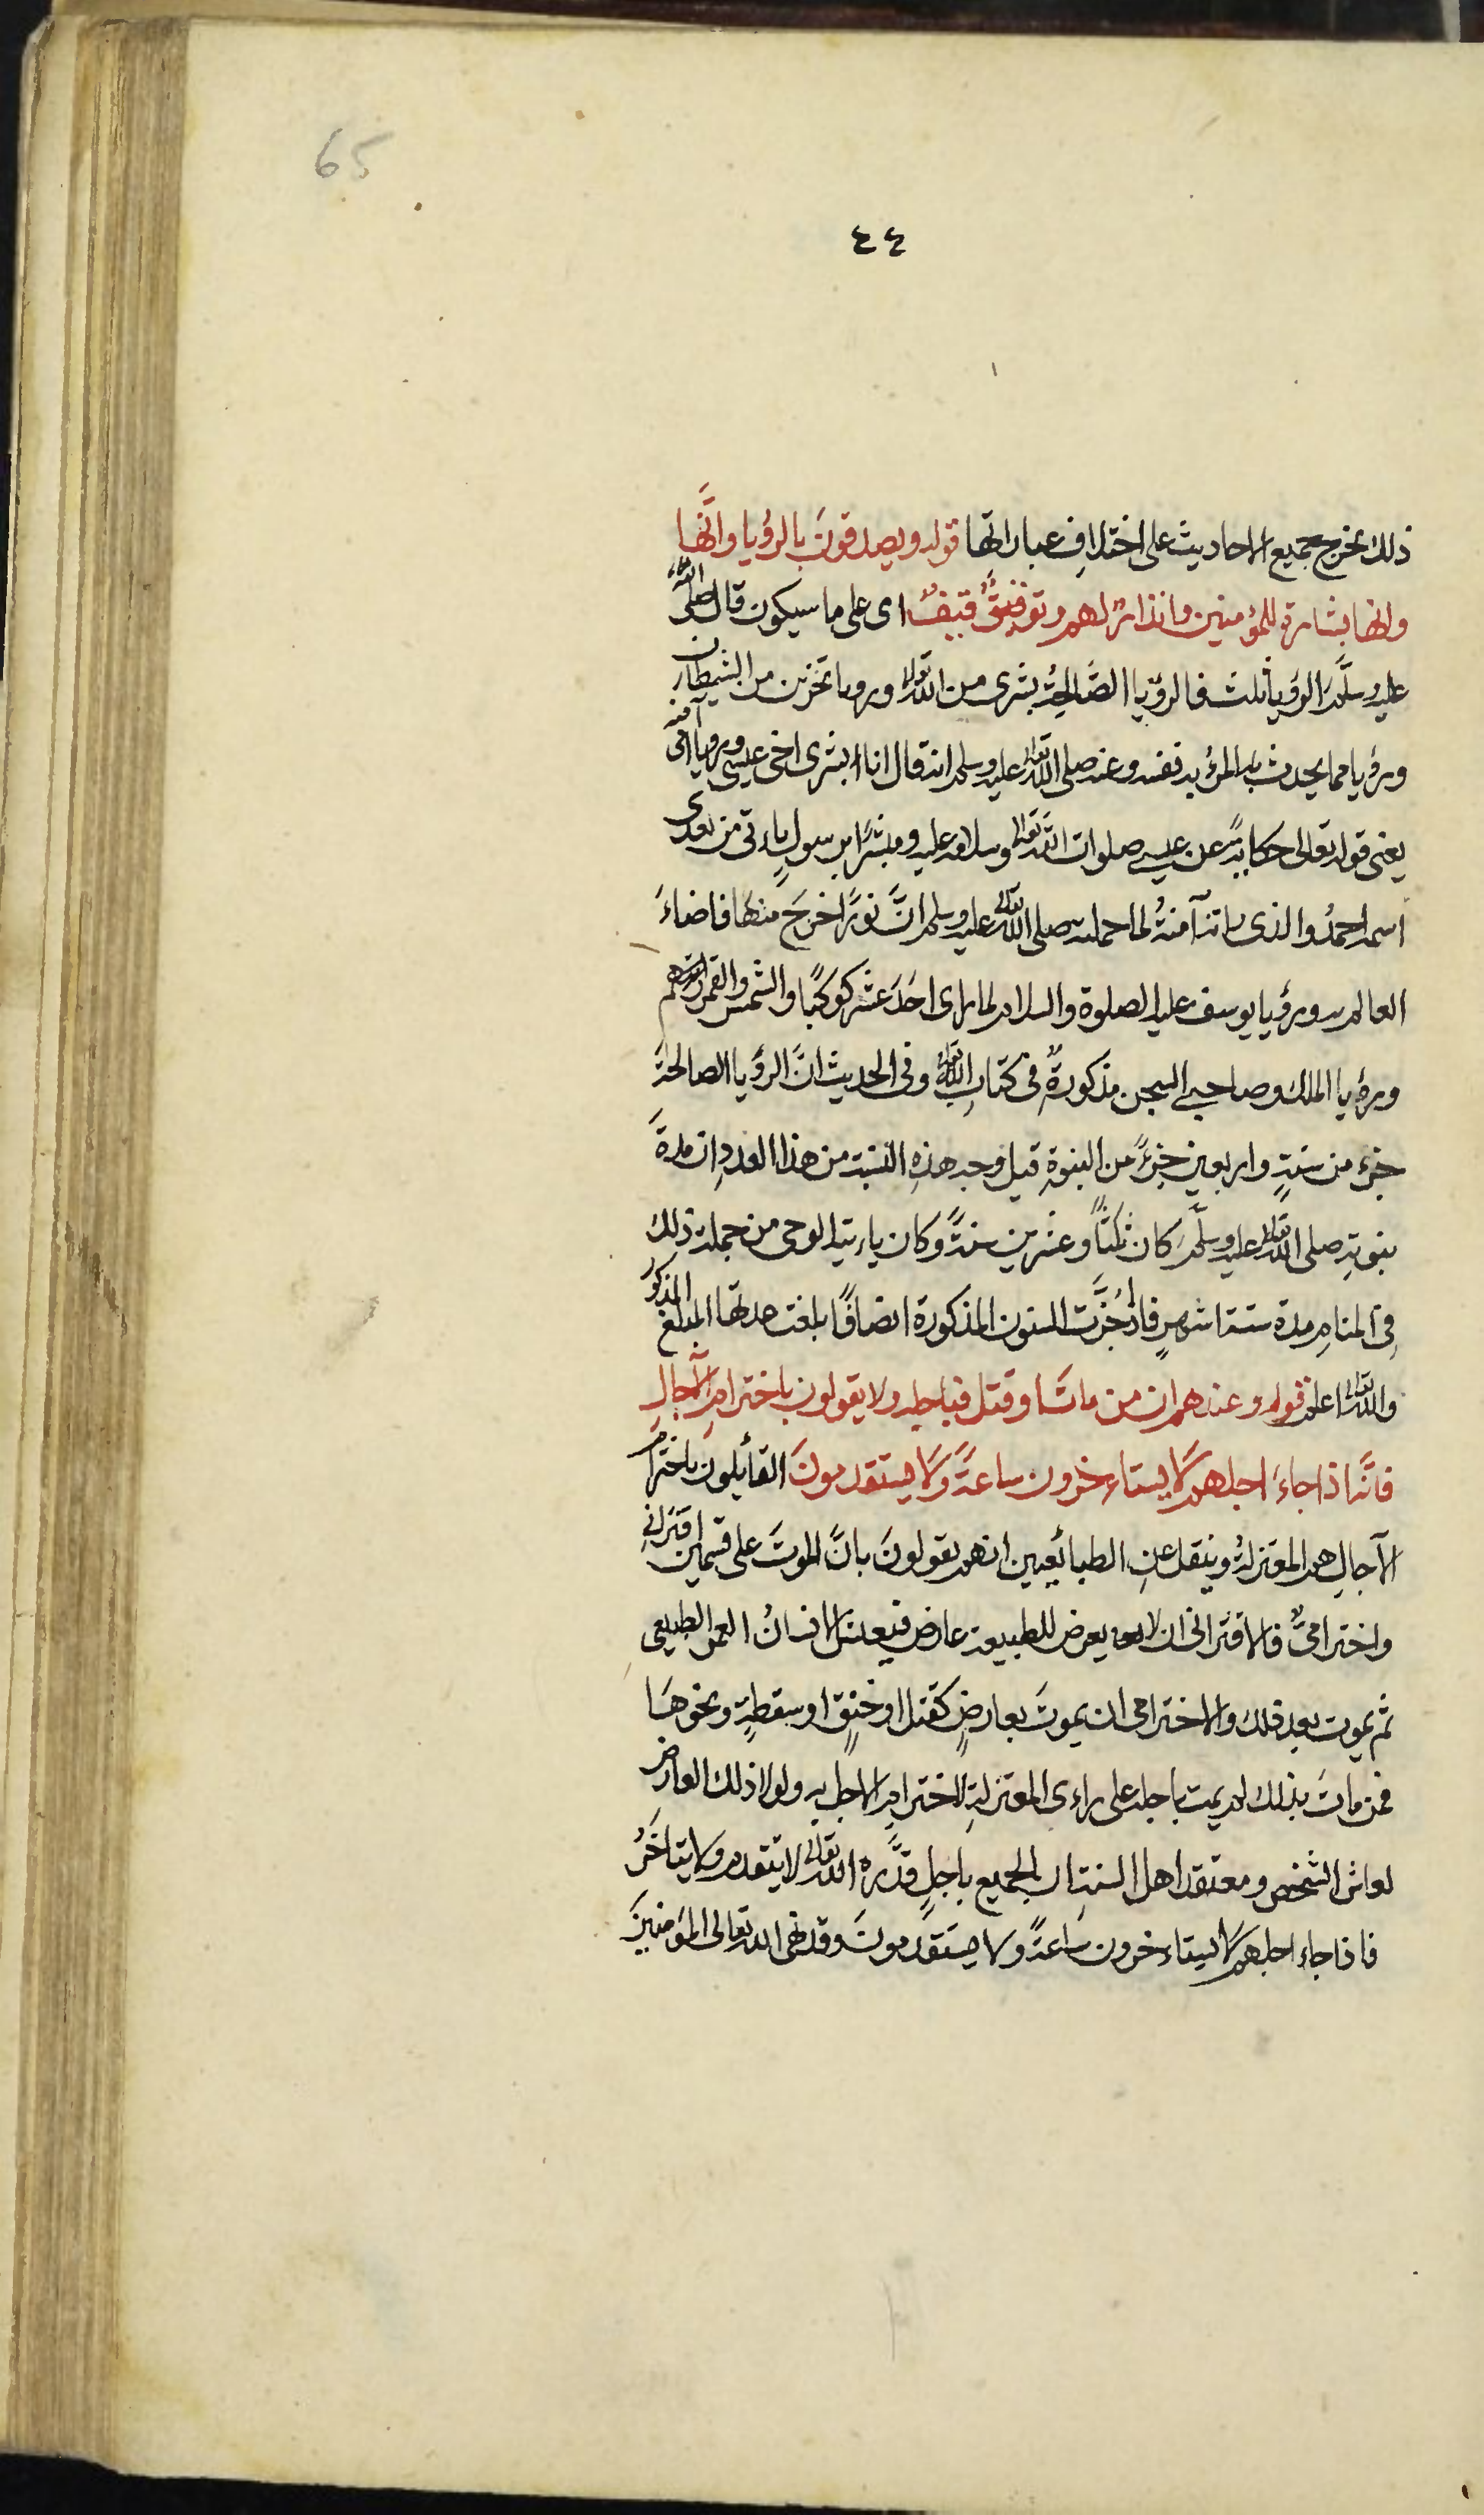 65
٤٤
ذلك يخرج جميع الاحاديث على اختلافِ عباراتها قوله ويصدقونَ بالرؤيا وانَّها
وانها بشارة للمؤمنين وانذارٌ لهم وتوفيقٌ اى على ما سيكون قال صلى الله
عليه وسلَّم الرؤيا ثلث فالرؤيا الصَّالحةُ بشرى من الله تعالى ورويا تحزين من الشيطان
ورؤيا مما يحدث به المرؤ به نفسه وعنه صلى الله تعالى عليه وسلم انه قال انا ابشرى اخى عيسى ورويا امى آمنه
يعنى قوله تعالى حكايةً عن عيسى صلوات الله تعالى وسلامه عليه ومبشرًا برسولٍ ياءتى من بعدى
اسمه احمدُ والذى راته آمنةُ لما حملته صلى الله تعالى عليه وسلم انَّ نورًا خرجَ منها فاضاءَ
العالم ورؤيا يوسف عليه الصلوة والسلام لما راى احَدَ عشر كوكبًا والشمس والقمر
ورؤيا الملك وصاحبى السجن مذكورةٌ فى كتابِ الله تعالى وفى الحديث انَّ الرؤيا الصالحةَ
جزء من ستةٍ واربعين جزءً من النبوةِ قيل وجه هذهِ النسبة من هذا العددِ ان مدةَ
نبوتهِ صلى الله تعالى عليه وسلَّم كان ثلثًا وعشرين سنةً وكان ياءتيه الوحى من جملة ذلك
فى المنامِ مدة ستة اشهرٍ فاذا جُزَّت السنون المذكورة انصافًا بلغت عدتها المبلغ المذكور
والله تعالى اعلم قوله وعندهم ان من ماتَ او قتل فباجله ولا يقولون باخترامِ الآجالِ
فانَّه اذا جاءَ اجلهم لا يستاءخرون ساعةً ولا يستقدمونَ القائلون باخترام
الآجالِ هم المعتزلةُ وينقل عنِ الطبائعيين انهم يقولونَ بانَّ الموتَ على قسمين اقترانى
واخترامىٌّ فالاقترانى ان لا يعرض للطبيعة عارض فيعيش الانسانُ العمر الطبيعى
ثم يموت بعد ذلك والاخترامى ان يموتَ بعارضٍ كقتل او خنقٍ او سقطةٍ ونحوها
فمن ماتَ بذلك لم يمت باجله على راءى المعتزلةِ لاخترامِ الاجل به ولولا ذلك العارض
لعاش الشخص ومعتقد اهل السنة ان الجميع باجلٍ قدَّره الله تعالى لا يتقدم ولا يتاخرُ
فاذا جاء اجلهم لا يستاءخرون ساعةً ولا يستقدمونَ وقد نهى الله تعالى المؤمنينَ